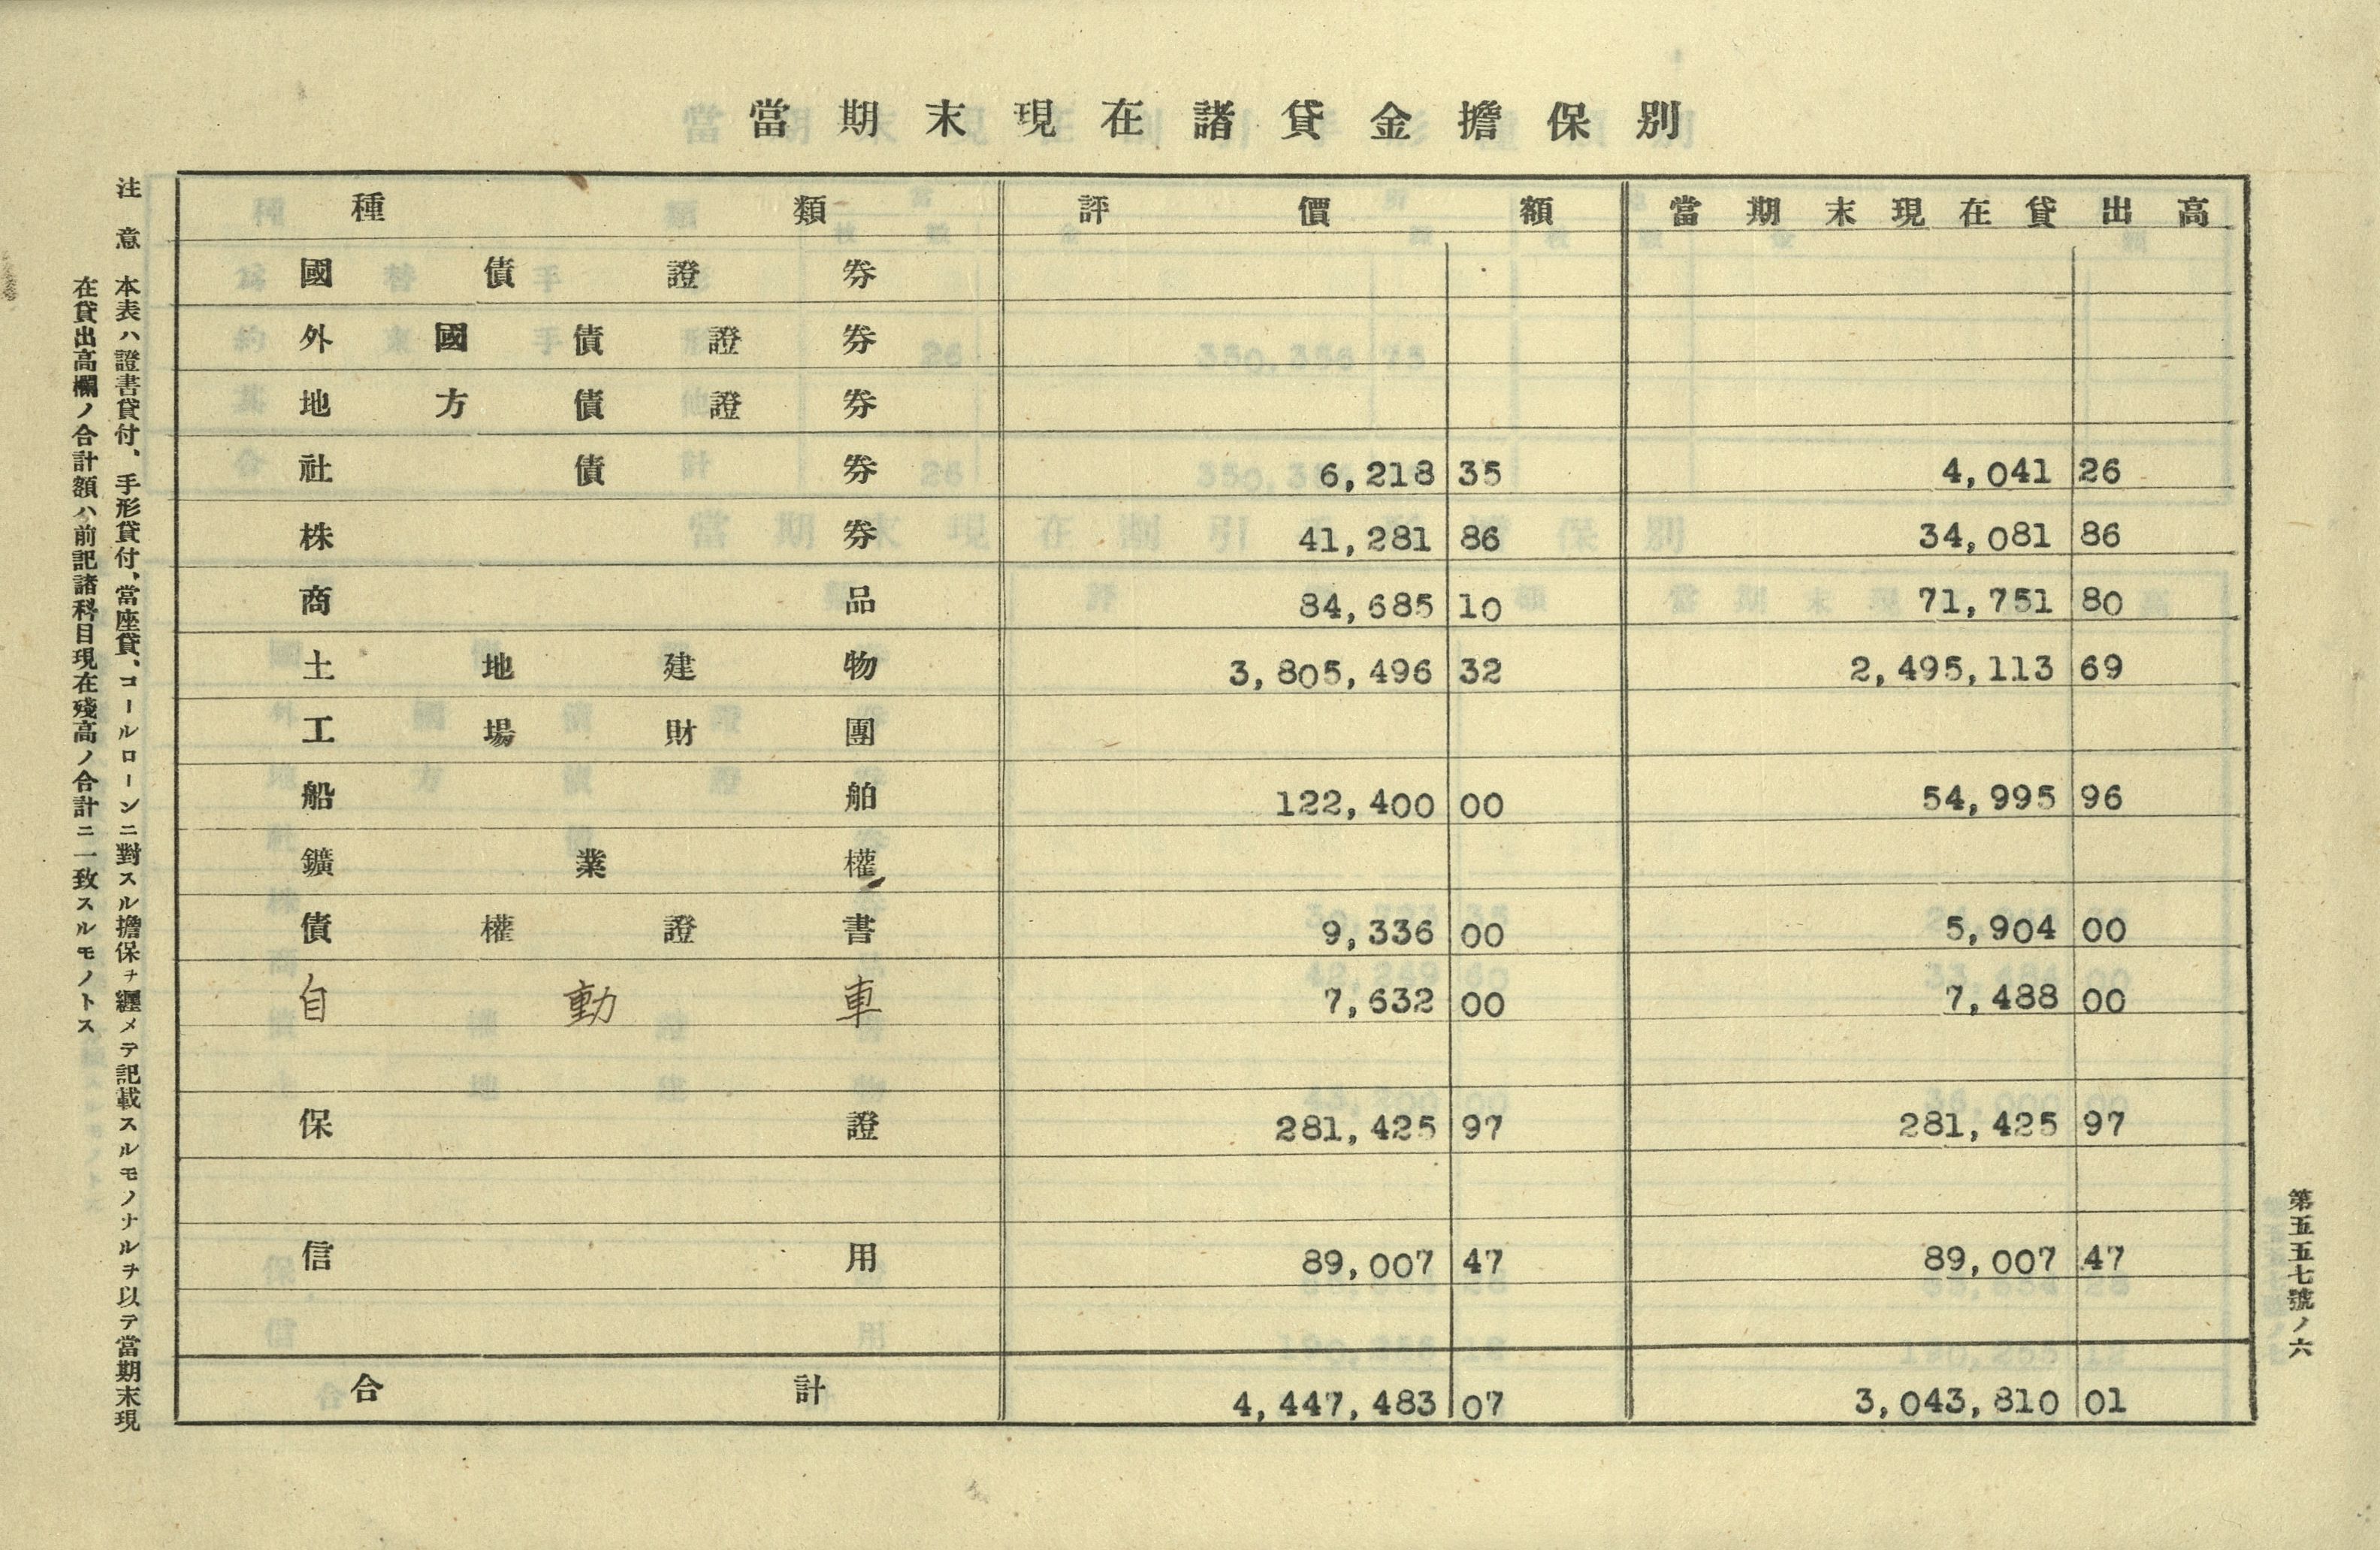 當期末現在諸貸金擔保別
種類 評價額 當期末現在貸出高
國債證券
外國債證券
地方債證券
社債券 6,218 35 4,041 26
株券 41,281 86 34,081 86
商品 84,685 10 71,751 80
土地建物 3,805,496 32 2,495,113 69
工場財團
船舶 122,400 00 54,995 96
鑛業權
債權證書 9,336 00 5,904 00
自動車 7,632 00 7,488 00
保證 281,425 97 281,425 97
信用 89,007 47 89,007 47
合計 4,447,483 07 3,043,810 01
第五五七號ノ六
注意 本表ハ證書貸付、手形貸付、當座貸、コールローンニ對スル擔保ヲ纒メテ記載スルモノナルヲ以テ當期末現
在貸出高欄ノ合計額ハ前記諸科目現在殘高ノ合計ニ一致スルモノトス